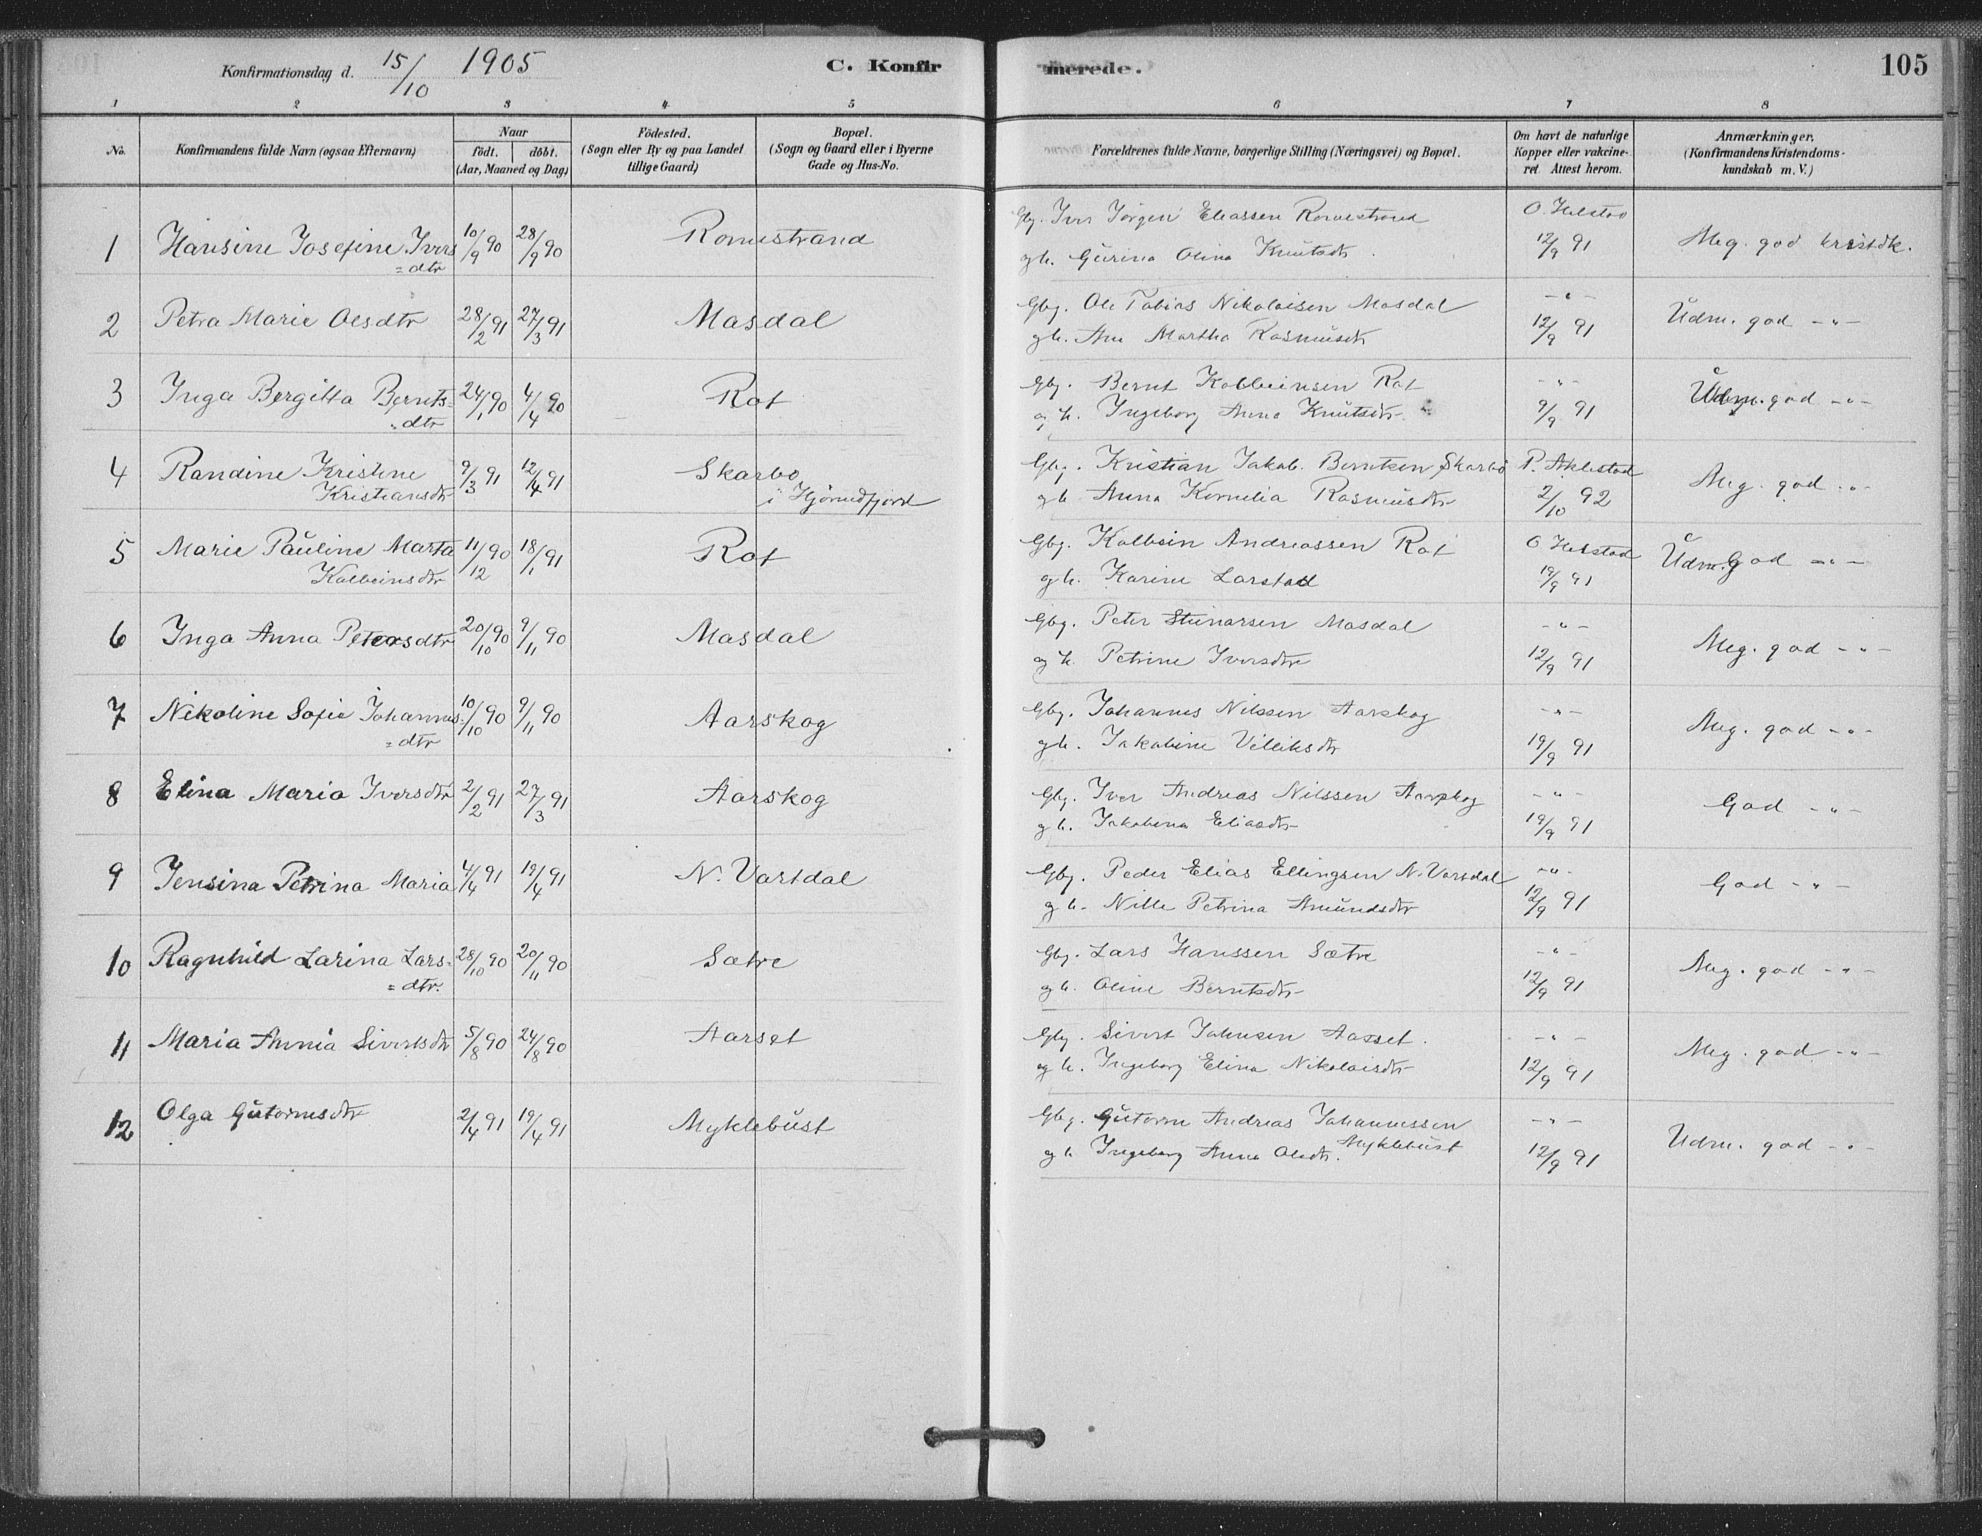 Konfirmationsdag d. 15/10 1905 C. Konfirmerede. 105
1 2 3 4 5 6 7 8
No. Konfirmandens fulde Navn (ogsaa Efternavn) Naar født. døbt. (Aar, Maaned og Dag) Födested. (Sogn eller By og paa Landet tillige Gaard) Bopæl. (Sogn og Gaard eller i Byerne Gade og Hus-No. Forældrenes fulde Navne, borgerlige Stilling (Næringsvei) og Bopæl. Om havt de naturlige Kopper eller vakcineret. Attest herom. Anmærkninger, (Konfirmandens Kristendomskundskab m. V.)
1 Hansine Josefine Ivers=dtr 10/9 90 28/9 90 Romestrand Gbj. Iver Jørgen Eliassen Romestrand O. Helstad
og h. Gurina Olina Knutsdtr. 12/9 91 Meg. god kristdk.
2 Petra Marie Olsdtr 28/2 91 27/3 91 Masdal Gbj. Ole Tobias Nikolaisen Masdal -"-
og h. Ane Martha Rasmusdtr 12/9 91 Udm. god -"-
3 Inga Bergitta Bernts=dtr 24/1 90 4/4 90 Rot Gbj. Bernt Kolbeinsen Rot -"-
og h. Ingeborg Anna Knutsdtr. 9/9 91 Udm. god -"-
4 Randine Kristine Kristiansdtr 9/3 91 12/4 91 Skarbø i Hjørundfjord Gbj. Kristian Jakob Berntsen Skarbø P. Aklestad
og h. Anna Kornelia Rasmusdtr 2/10 92 Meg. god -"-
5 Marie Pauline Marta Kolbeinsdtr 11/12 90 18/1 91 Rot Gbj. Kolbein Andreassen Rot O Helstad
og h. Karine Larsdtr 19/9 91 Udm. god -"-
6 Inga Anna Petersdtr 20/10 90 9/11 90 Masdal Gbj. Peter Steinarsen Masdal -"-
og h. Petrine Iversdtr 12/9 91 Meg. god -"-
7 Nikoline Sofie Johannes=dtr 10/10 90 9/11 90 Aarskog Gbj. Johannes Nilssen Aarskog -"-
og h. Jakobine Villiksdtr 19/9 91 Meg. god -"-
8 Elina Maria Iversdtr 2/2 91 27/3 91 Aarskog Gbj. Iver Andreas Nilssen Aarskog -"-
og h. Jakobina Eliasdtr 19/9 91 God -"-
9 Jensina Petrina Maria 4/4 91 19/4 91 N. Vartdal Gbj. Peder Elias Ellingsen N. Vartdal -"-
og h. Nille Petrina Amundsdtr 12/9 91 God -"-
10 Ragnhild Larina Lars=dtr. 28/10 90 20/11 90 Sætre Gbj. Lars Hanssen Sætre -"-
og h. Oline Berntsdtr 12/9 91 Meg. god -"-
11 Maria Annia Sivertsdtr 5/8 90 24/8 90 Aarset Gbj. Sivert Johnsen Aarset. -"-
og h. Ingeborg Elina Nikolaisdtr 12/9 91 Meg. god -"-
12 Olga Gutormsdtr 2/4 91 19/4 91 Myklebust Gbj. Gutorm Andreas Johannessen Myklebust -"-
og h Ingeborg Anna Olsdtr. 12/9 91 Udm. god -"-